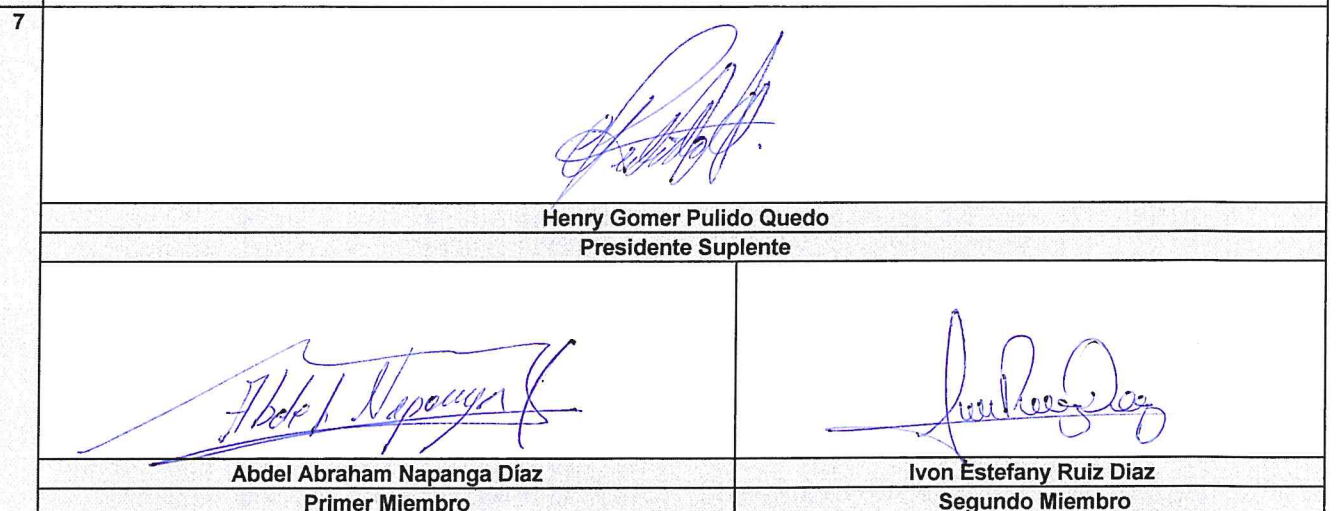 7
Henry Gomer Pulido Quedo
Presidente Suplente
Abdel Napanga
Abdel Abraham Napanga Díaz
Primer Miembro
Ivon Estefany Ruiz Diaz
Segundo Miembro